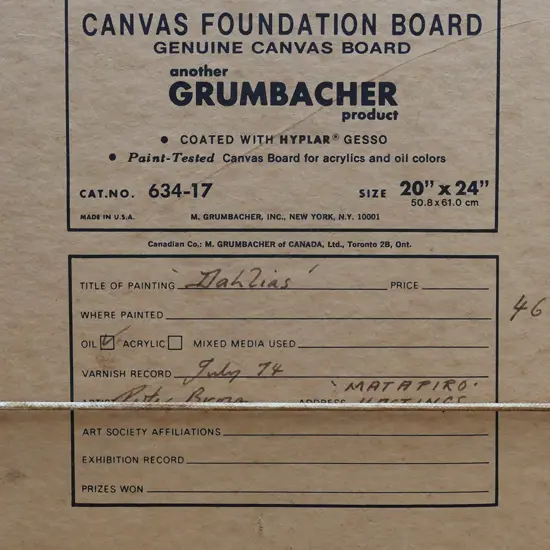 CANVAS FOUNDATION BOARD
GENUINE CANVAS BOARD
another
GRUMBACHER
product
• COATED WITH HYPLAR® GESSO
• Paint-Tested Canvas Board for acrylics and oil colors
CAT. NO. 634-17 SIZE 20" x 24"
50.8 x 61.0 cm
MADE IN U.S.A. M. GRUMBACHER, INC., NEW YORK, N.Y. 10001
Canadian Co.: M. GRUMBACHER of CANADA, Ltd., Toronto 2B, Ont.
TITLE OF PAINTING 'Dahlias' PRICE
WHERE PAINTED 46
OIL ACRYLIC MIXED MEDIA USED
VARNISH RECORD July 74
'MATAPIRO'
ARTIST Peter Brown ADDRESS HASTINGS
ART SOCIETY AFFILIATIONS
EXHIBITION RECORD
PRIZES WON